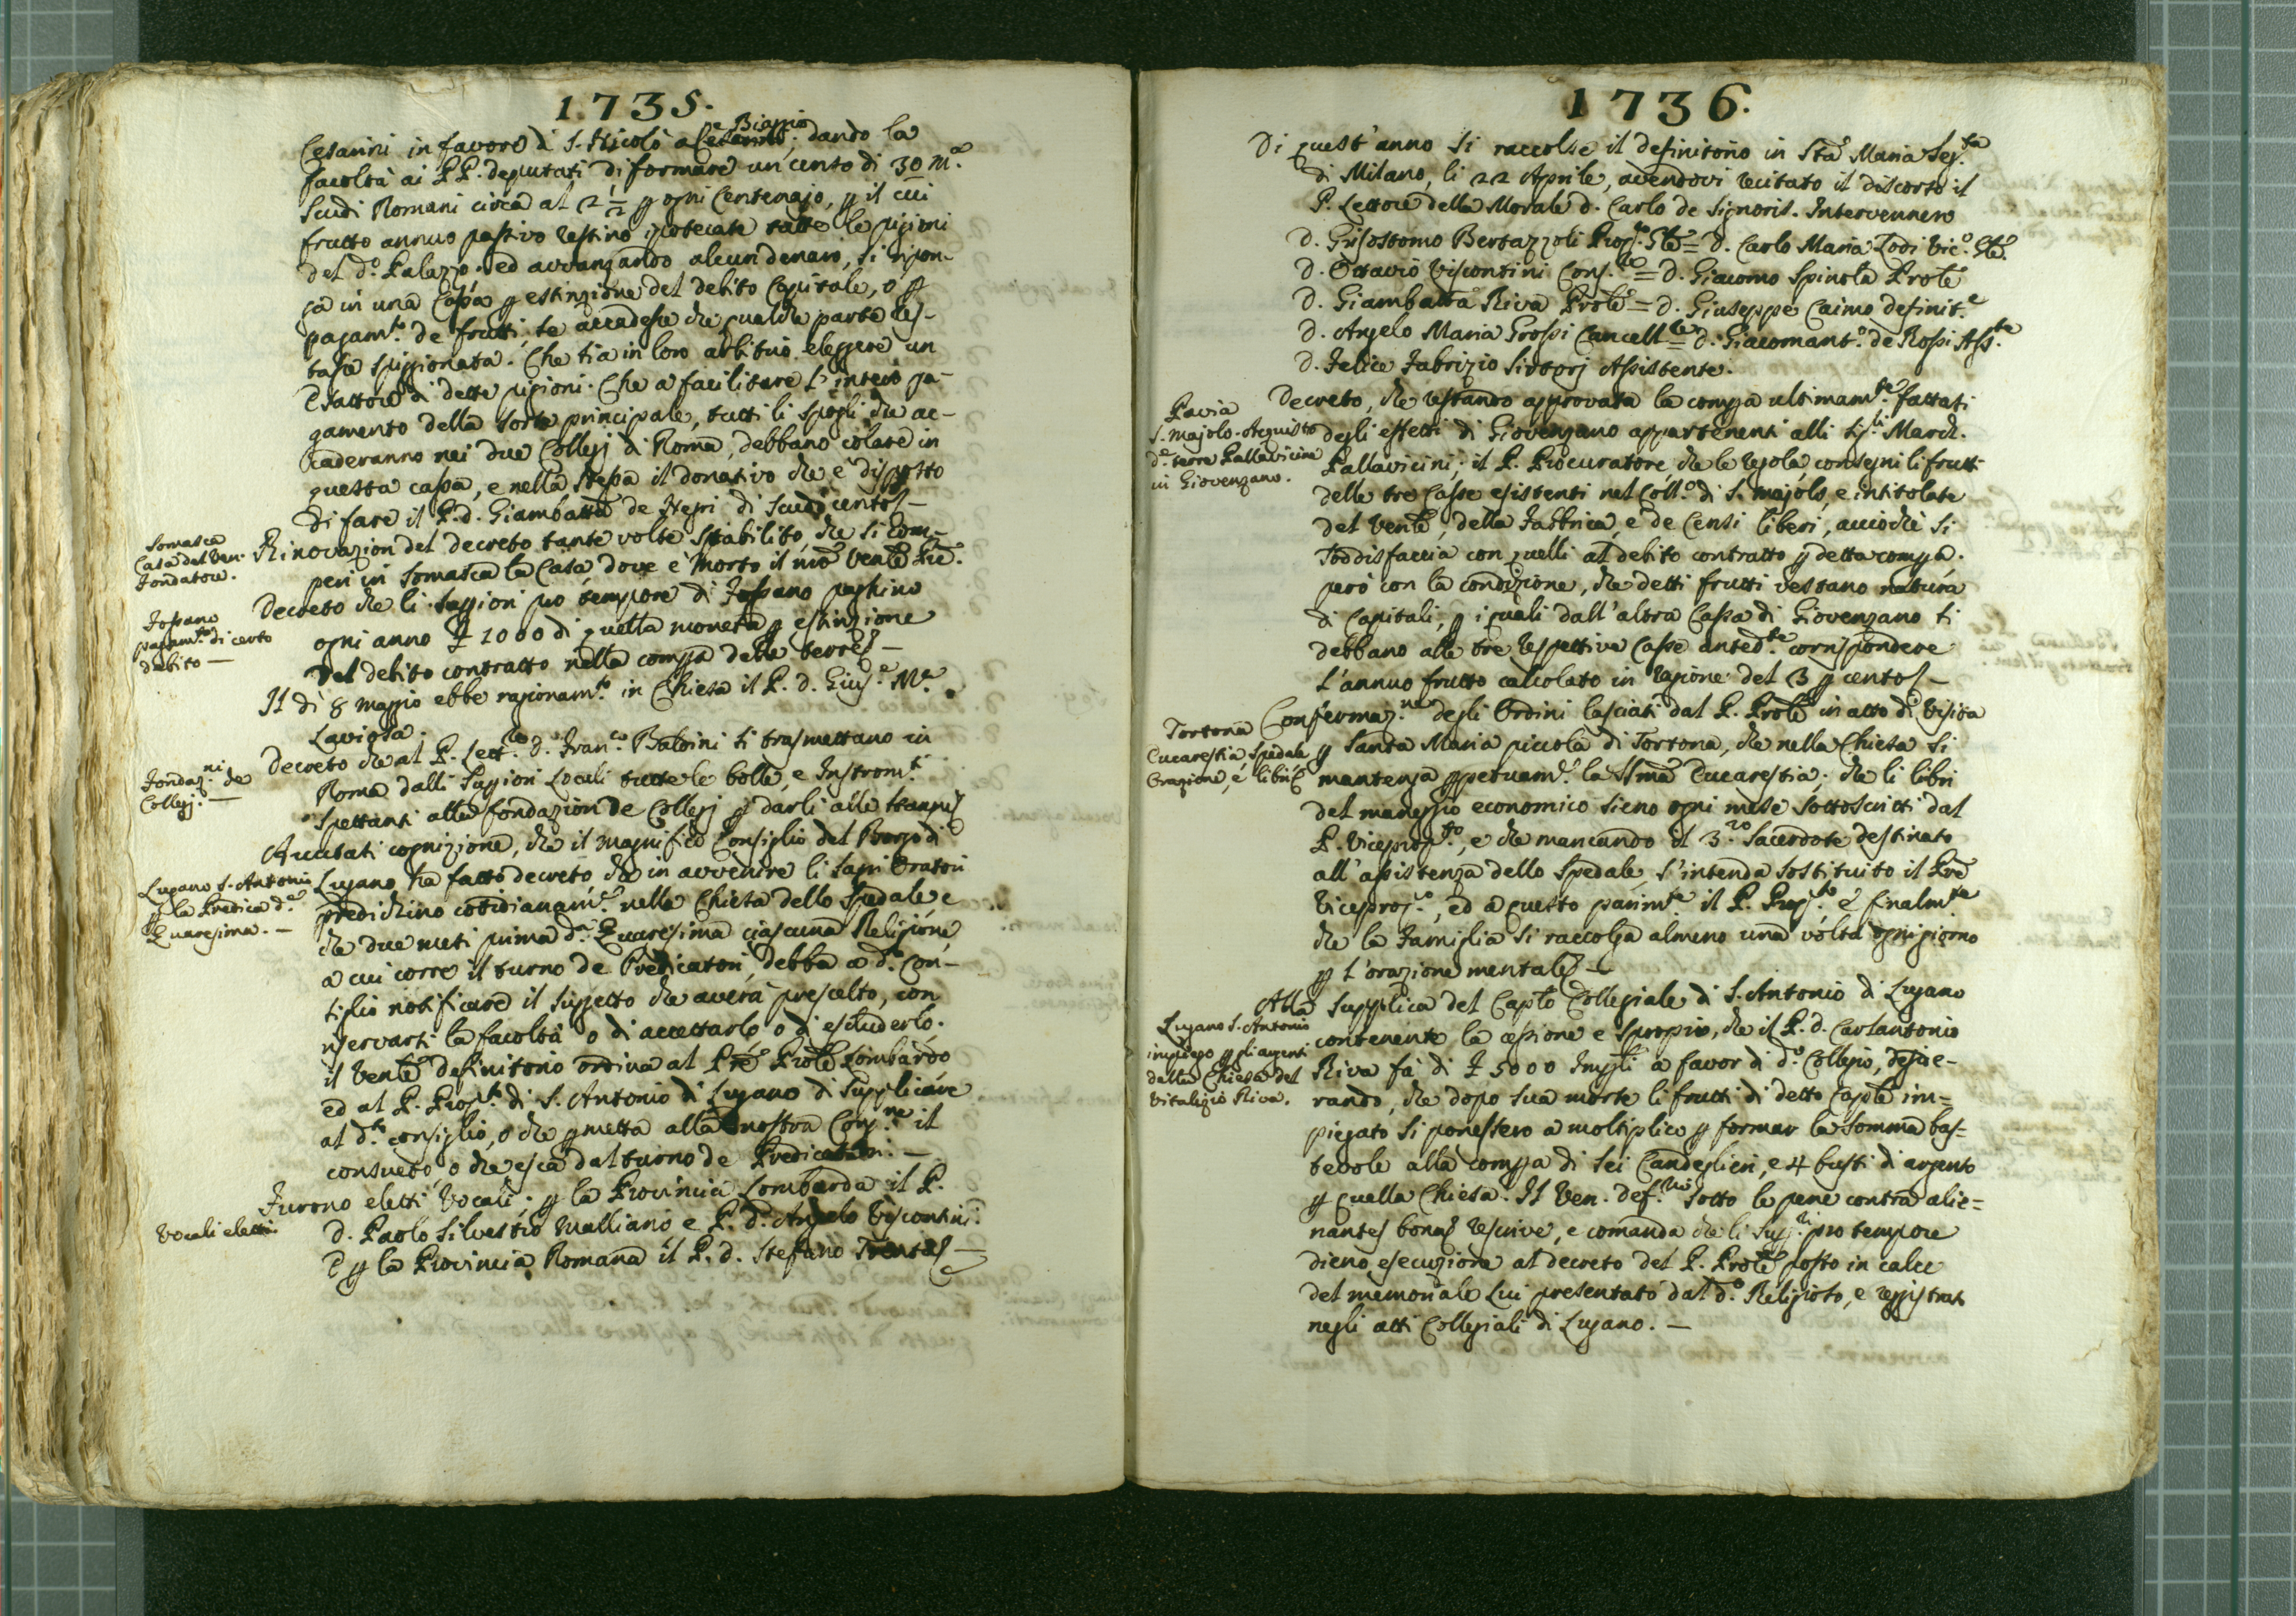 1735.
e Biaggio
Cesarini in favore di S. Nicolò a Cesarini; dando la
facoltà ai PP. deputati di formare un cento di 30 m.a
scudi Romani circa al 2 1/2 p ogni Centenajo, p il cui
frutto annuo passivo restino ipotecate tutte le pigioni
del d.o Palazzo. ed avvanzando alcun denaro, si ripon-
ga in una Cassa p estinzione del debito Capitale, o p
pagam.to de frutti, se accadesse che qualche parte res-
tasse spiggionata. Che sia in loro arbitrio eleggere un
Esattore di dette pigioni. Che a facilitare l'intero pa-
gamento della sorte principale, tutti li spogli che ac-
caderanno nei due Collegj di Roma, debbano colare in
questa cassa, e nella stessa il donativo che è disposto
di fare il P. d. Giambatta de Negri di scudi cento
Somasca
Casa del Ven.
Fondatore.
Rinovazion del decreto tante volte stabilito, che si com-
peri in Somasca la Casa dove è morto il nro Venle Pre.
Fossano
pagam.to di certo
debito —
Decreto che li Suggiori pro tempore di Fossano paghino
ogni anno £ 1000 di quella moneta p estinzione
del debito contratto nella compra delle terre —
Il dì 8 maggio ebbe ragionam.to in Chiesa il P. d. Gius.e M.a
Laviosa.
Fondaz.ni de
Collegj. —
Decreto che al P. Lett.re d. Fran.co Baldini si trasmettano in
Roma dalli Suggiori Locali tutte le bolle, e Instrom.ti
spettanti alla fondazion de Collegj p darli alle stampe
Lugano S. Antonio
p la Predica d.a
Quaresima. —
Avutasi cognizione, che il magnifico Consiglio del Borgo di
Lugano ha fatto decreto che in avvenire li sagri Oratori
predichino cottidianam.e nella Chiesa dello Spedale e
che due mesi prima d.a Quaresima ciascuna Religione
a cui corre il turno de Predicatori, debba a d.o Con-
siglio notificare il suggetto che averà prescelto, con
riservarsi la facoltà o di accettarlo o di escluderlo.
il Venle definitorio ordina al Pre Prole Lombardo
ed al P. Prop.to di S. Antonio di Lugano di supplicare
al d.to consiglio, o che pmetta alla nostra Cong.ne il
consueto, o che esca dal turno de Predicatori. —
Vocali eletti
Furono eletti Vocali; p la Provincia Lombarda il P.
d. Paolo Silvestro Malliano e P. d. Angelo Viscontini:
E p la Provincia Romana il P. d. Stefano Trenta —
1736.
Di quest'anno si raccolse il definitorio in Sta Maria Seg.ta
di Milano, li 22 Aprile, avendovi recitato il discorso il
P. Lettore della Morale d. Carlo de Signoris. Intervennero
d. Grisostomo Bertazzoli Prop.to Gle = d. Carlo Maria Lodi Vic.o Gle.
d. Ottavio Viscontini Cons.re = d. Giacomo Spinola Prole
d. Giambatta Riva Prole = d. Giuseppe Caimo definit.e
d. Angelo Maria Grossi Cancell.re = d. Giacomant.o de Rossi Ass.te
d. Felice Fabrizio Sirtorj Assistente.
Pavia
S. Majolo. Acquisto
d.e terre Pallavicine
in Giovenzano.
Decreto, che restando approvata la compra ultimam.te fattasi
degli effetti di Giovenzano appartenenti alli Sig.li March.
Pallavicini; il P. Procuratore che le regola consegni li frutti
delle tre Casse esistenti nel Coll.o di S. Majolo, e intitolate
del Venle, della Fabbrica, e de Censi liberi, acciochè si
soddisfaccia con quelli al debito contratto p detta compra.
però con la condizione, che detti frutti vestano natura
di Capitali, p i quali dall'altra Cassa di Giovenzano si
debbano alle tre respettive Casse anted.te corrispondere
l'annuo frutto calcolato in ragione del 3 p cento —
Tortona
Eucarestia, Spedale
Orazione, e libri
Confermaz.ne degli Ordini lasciati dal P. Prole in atto di Visita
p Santa Maria piccola di Tortona, che nella Chiesa si
mantenga ppetuam.e la SSma Eucarestia; che li libri
del maneggio economico sieno ogni mese sottoscritti dal
P. Viceprop.to, e che mancando il 3.zo Sacerdote destinato
all'assistenza dello Spedale, s'intenda sostituito il Pre
Viceprop.o, ed a questo parim.te il P. Prop.to e finalm.te
che la Famiglia si raccolga almeno una volta ogni giorno
p l'orazione mentale —
Lugano S. Antonio
impiego p gli argenti
della Chiesa del
Vitalizio Riva.
Alla supplica del Caplo Collegiale di S. Antonio di Lugano
contenente la cessione e spropio, che il P. d. Carlantonio
Riva fà di £ 5000 Impli a favor di d.o Collegio, deside-
rando, che dopo sua morte li frutti di detto Caple im=
piegato si ponessero a moltiplico p formar la somma bas=
tevole alla compra di sei Candeglieri, e 4 busti di argento
p quella Chiesa. Il Ven. def.rio sotto le pene contra alie=
nantes bona rescrive, e comanda che li Sup.ri pro tempore
dieno esecuzione al decreto del P. Prole posto in calce
del memoriale Lui presentato dal d.o Religioso, e reggistrato
negli atti Collegiali di Lugano. —